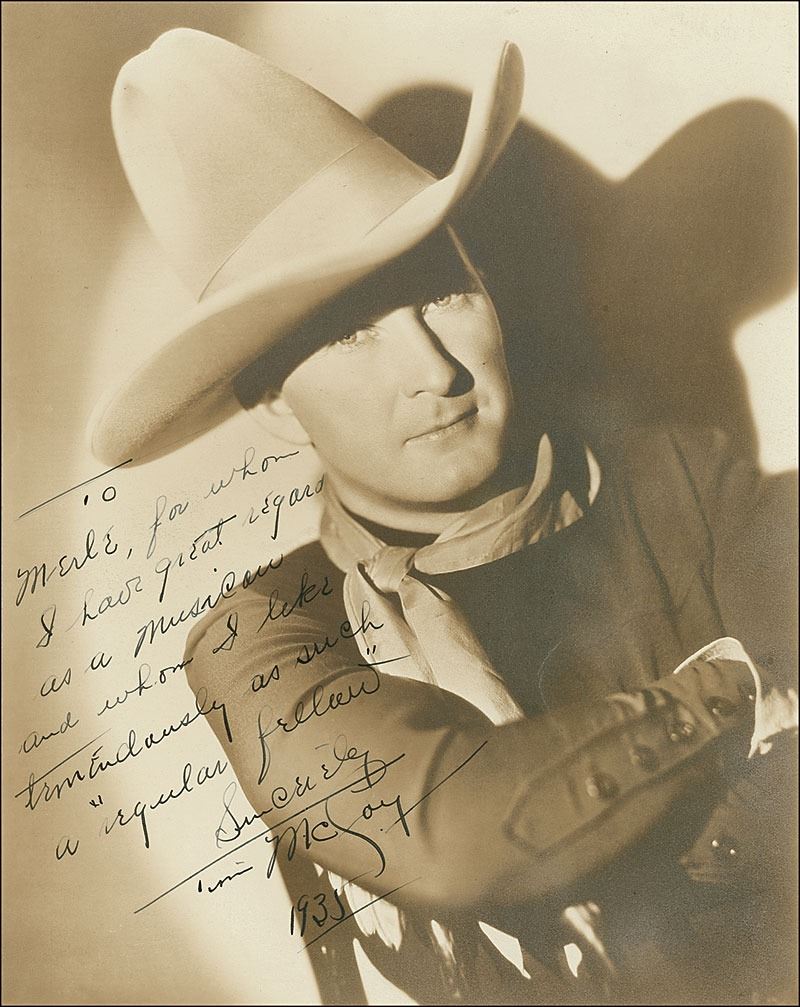 To
Merle, for whom
I have great regard
as a musician
and whom I like
tremendously as such
a "regular fellow"
Sincerely
Tim McCoy
1935